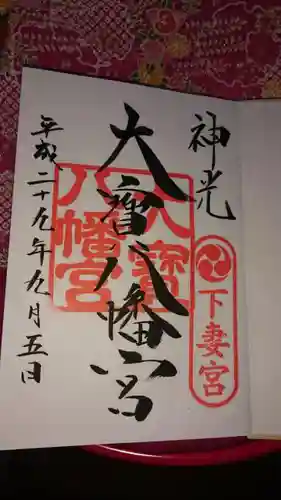 神光
下妻宮
大寳八幡宮
大寶八幡宮
平成二十九年九月五日